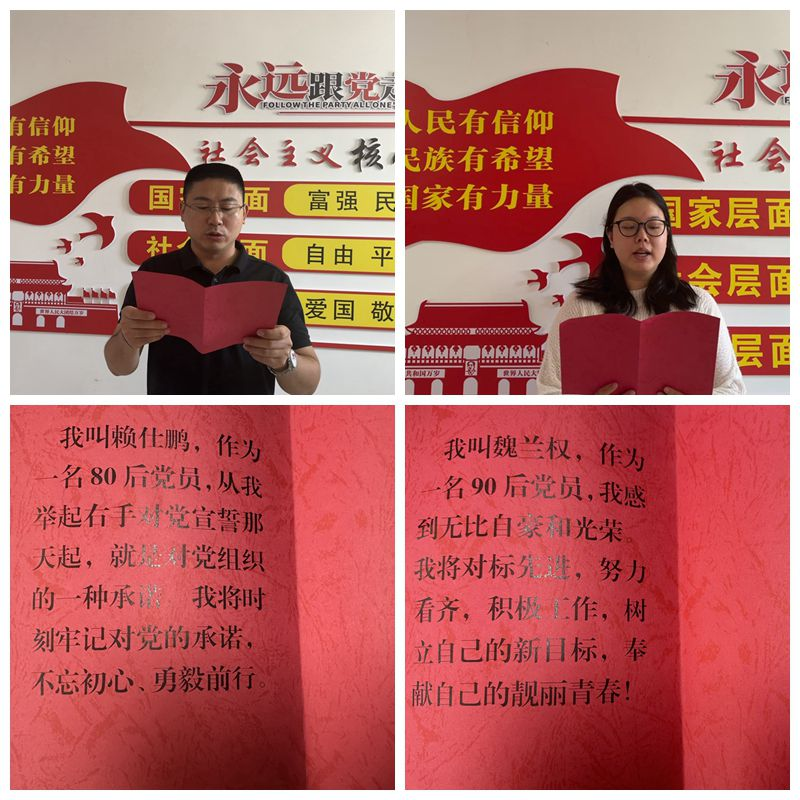 永远跟党
FOLLOW THE PARTY ALL ONE
社会主义核
有信仰
有希望
有力量
国 面
富强 民
社 面
自由 平
爱国 敬
世界人民大团结万岁
永远
社会
人民有信仰
民族有希望
国家有力量
国家层面
会层面
层面
共和国万岁
世界人民大
我叫赖仕鹏，作为
一名 80 后党员，从我
举起右手对党宣誓那
天起，就是对党组织
的一种承诺，我将时
刻牢记对党的承诺，
不忘初心、勇毅前行。
我叫魏兰权，作为
一名 90 后党员，我感
到无比自豪和光荣。
我将对标先进，努力
看齐，积极工作，树
立自己的新目标，奉
献自己的靓丽青春！